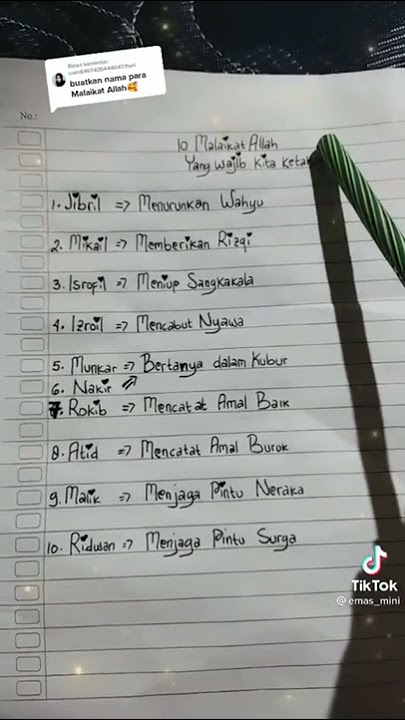 Balas komentar
buatkan nama para
Malaikat Allah🥰
No.:
10 Malaikat Allah
Yang wajib kita ketah
1. Jibril => Menurunkan Wahyu
2. Mikail => Memberikan Rizqi
3. Isrofil => Meniup Sangkakala
4. Izroil => Mencabut Nyawa
5. Munkar => Bertanya dalam Kubur
6. Nakir
7. Rokib => Mencatat Amal Baik
8. Atid => Mencatat Amal Burok
9. Malik => Menjaga Pintu Neraka
10. Ridwan => Menjaga Pintu Surga
TikTok
@emas_mini